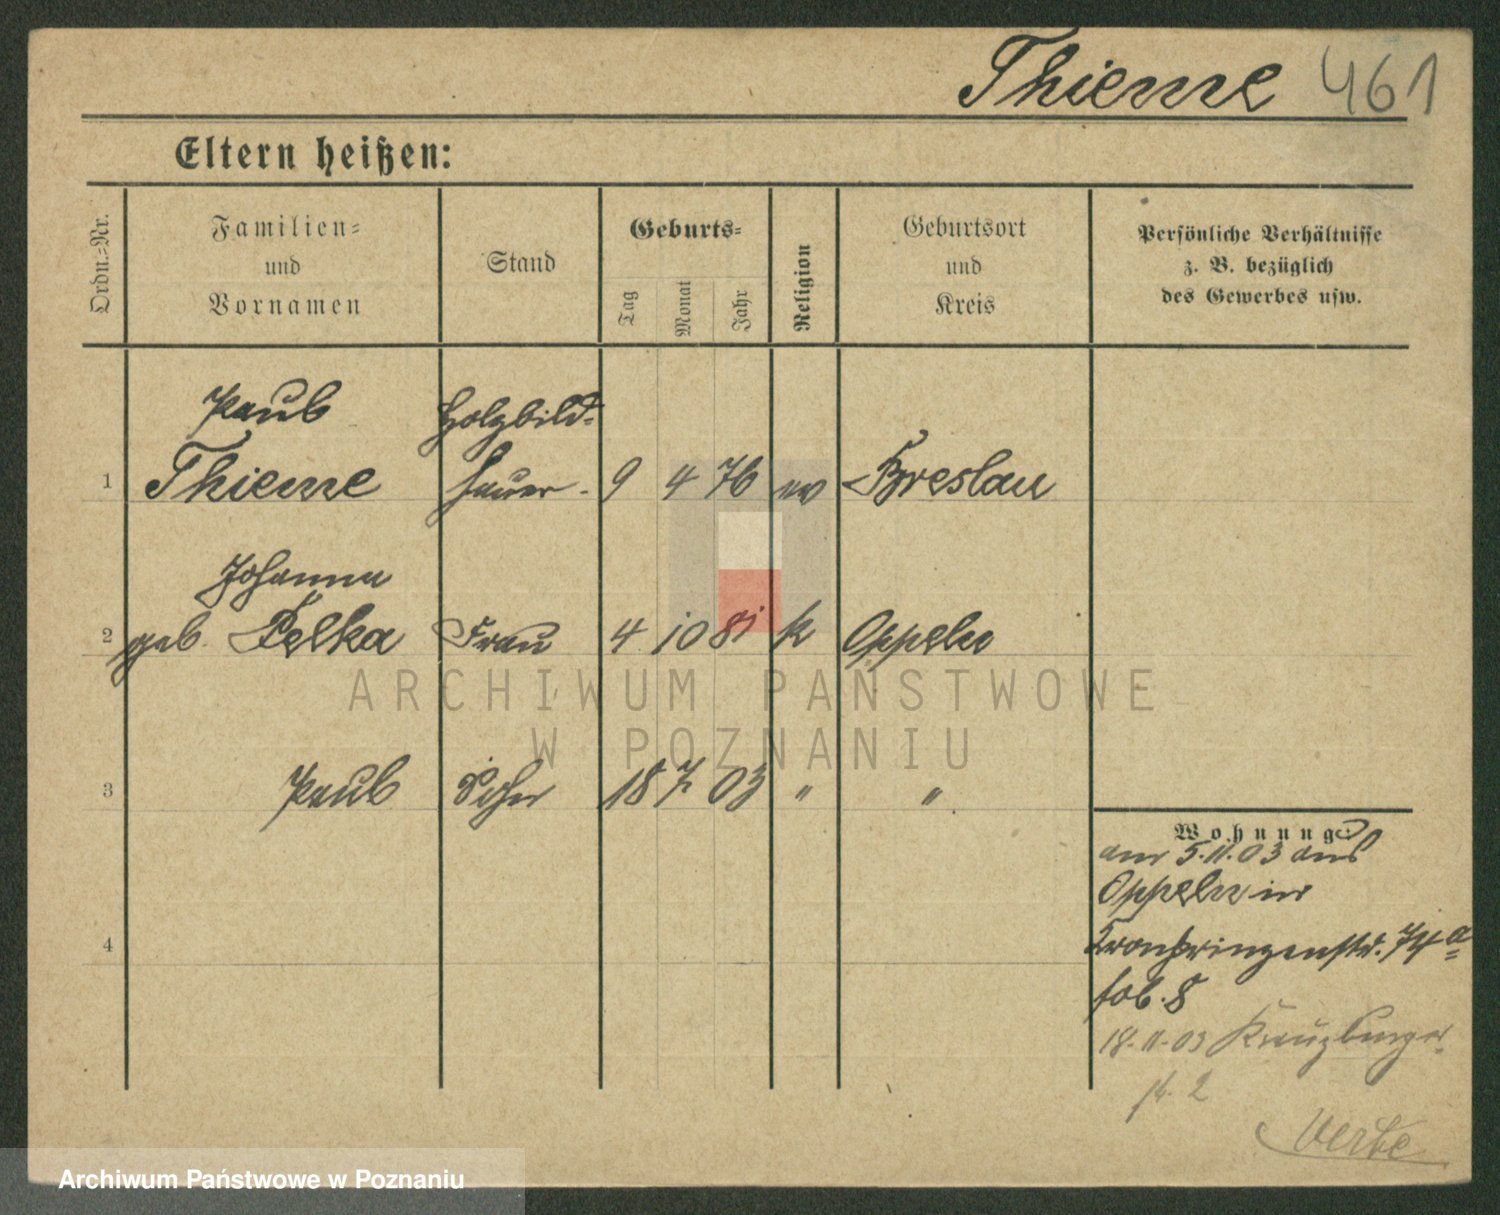 Thieme 461
Eltern heißen:
Ordn.-Nr.
Familien-
und
Vornamen
Stand
Geburts-
Tag
Monat
Jahr
Religion
Geburtsort
und
Kreis
Persönliche Verhältnisse
z. B. bezüglich
des Gewerbes usw.
Paul Holzbild-
1 Thieme hauer- 9 4 76 ev Breslau
Johanna
2 geb. Pelka Frau 4 10 81 k Oppeln
3 Paul Sohn 18 7 03 " "
Wohnung:
am 5.11.03 aus
Oppeln in
4
Kronprinzenstr. 74 a
bei
18.11.03 Kreuzburger
st. 2
ARCHIWUM PAŃSTWOWE
W POZNANIU
Archiwum Państwowe w Poznaniu